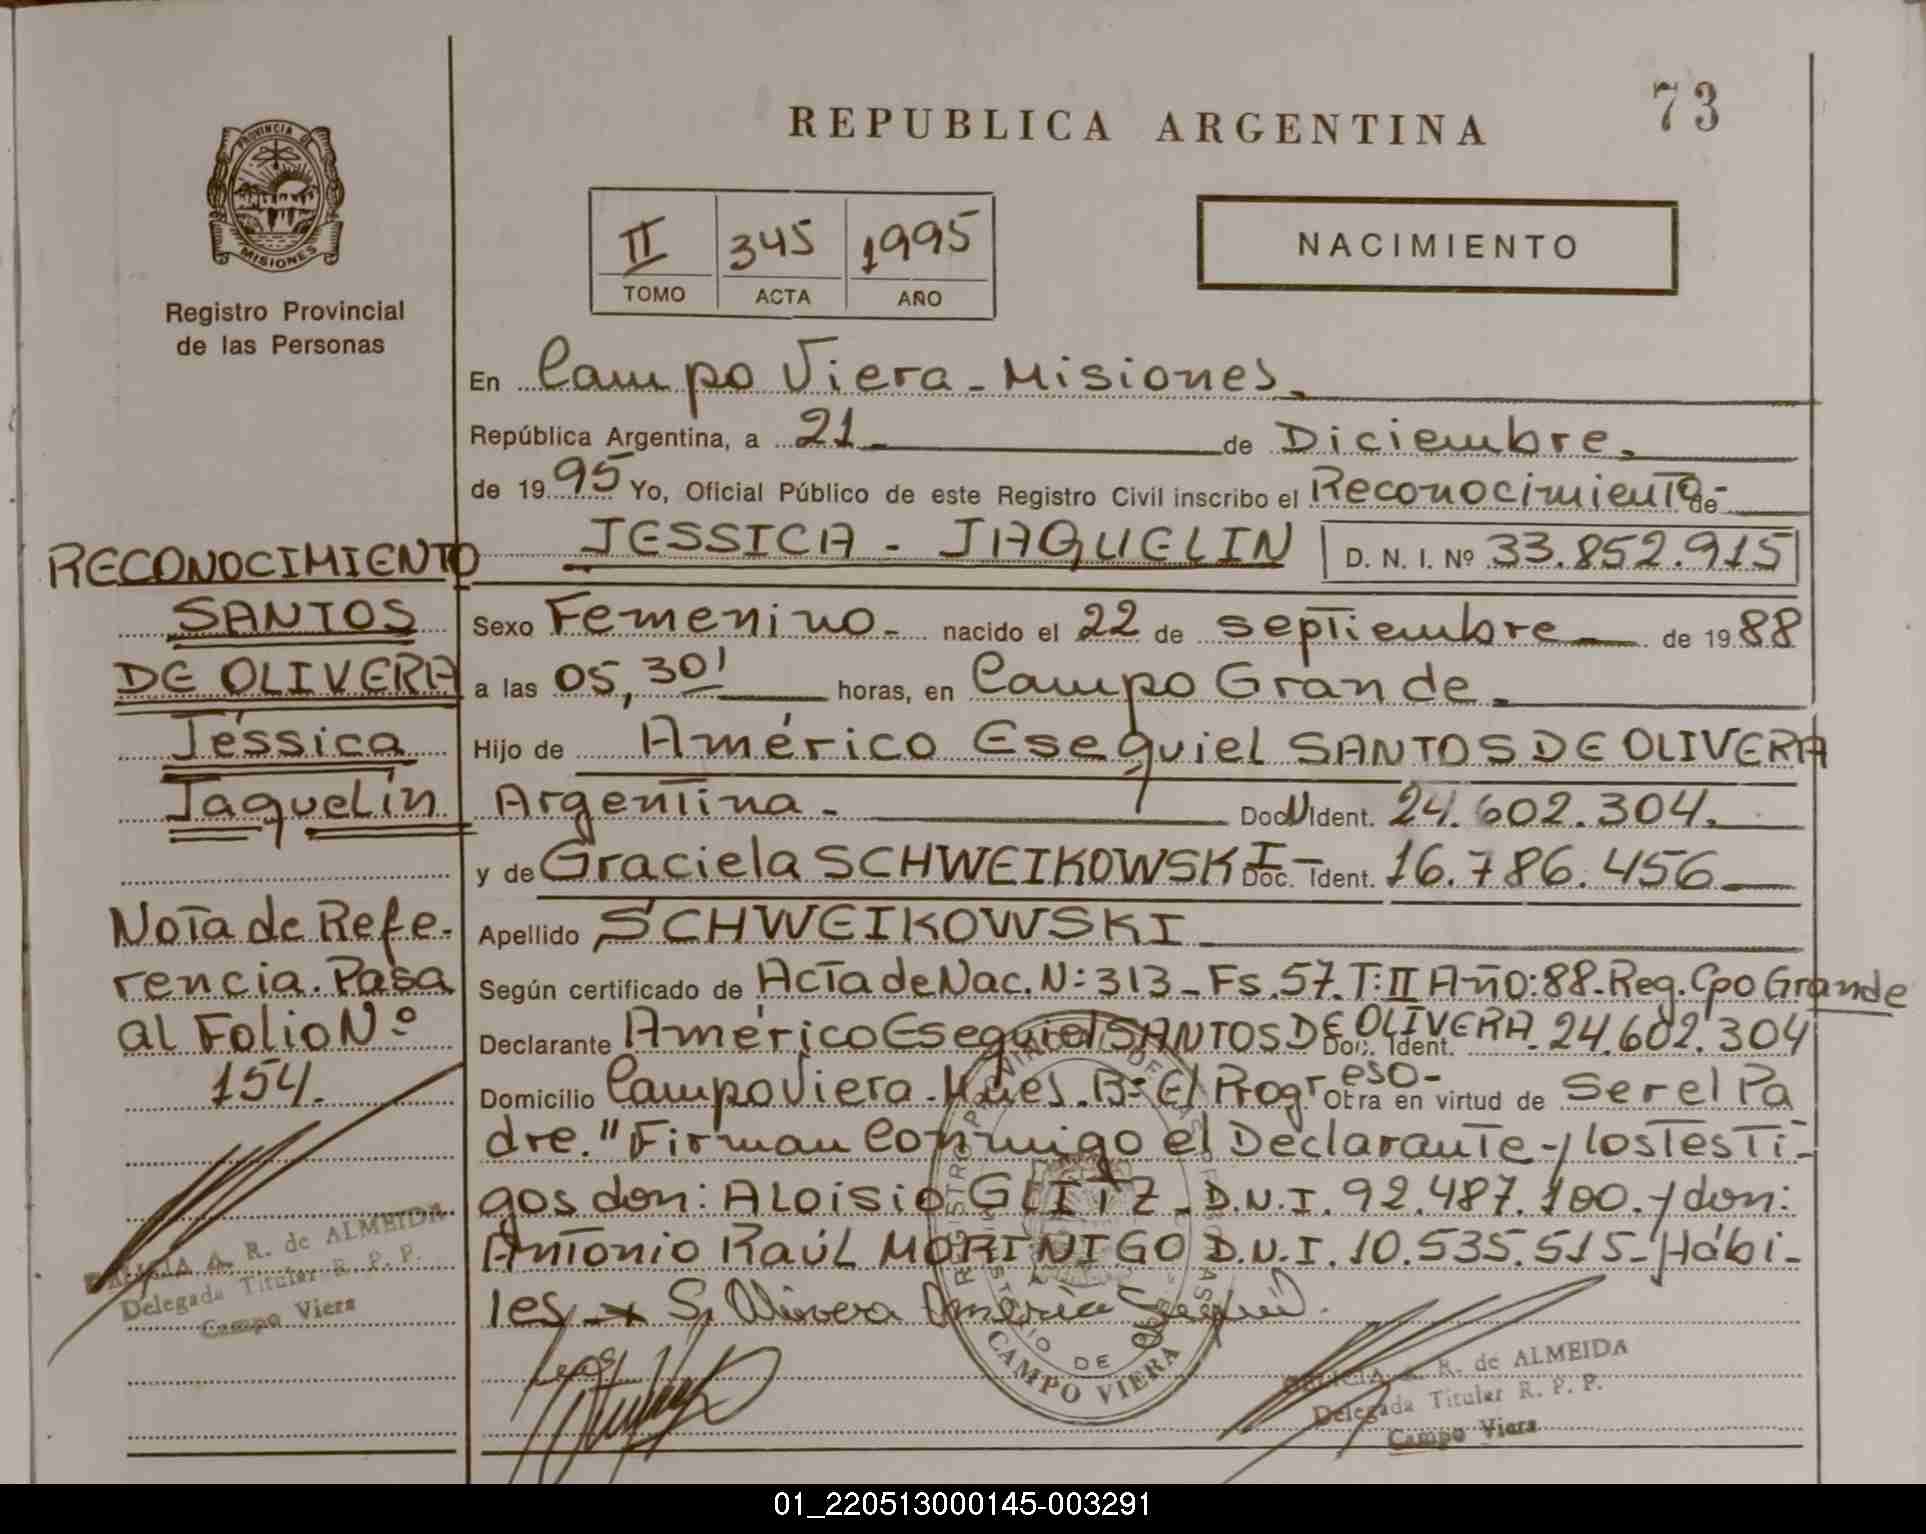 73
REPUBLICA ARGENTINA
PROVINCIA DE
MISIONES
Registro Provincial
de las Personas
II 345 1995
TOMO ACTA AÑO
NACIMIENTO
En Campo Viera - Misiones.
República Argentina, a 21 - de Diciembre.
de 1995 Yo, Oficial Público de este Registro Civil inscribo el Reconocimiento de -
JESSICA - JAQUELIN D. N. I. Nº 33.852.915
Sexo Femenino - nacido el 22 de septiembre - de 1988
a las 05,30' horas, en Campo Grande -
Hijo de Américo Esequiel SANTOS DE OLIVERA
Argentina - Doc. N Ident. 24.602.304.
y de Graciela SCHWEIKOWSKI - Doc. Ident. 16.786.456 -
Apellido SCHWEIKOWSKI
Según certificado de Acta de Nac. N: 313 - Fs. 57. T: II Año: 88 - Reg. Cpo Grande
Declarante Américo Esequiel SANTOS DE OLIVERA Doc. Ident. 24.602.304
Domicilio Campo Viera - Mnes. Bº El Progreso - Obra en virtud de Ser el Pa
dre." Firman Conmigo el Declarante - y los Testi -
gos don: ALoisio GLITZ - D.N.I. 92.487.100. - y don:
Antonio RaúL MORINIGO D.N.I. 10.535.515 - Hábi -
les -
RECONOCIMIENTO
SANTOS
DE OLIVERA
Jéssica
JaqueLin
Nota de Refe -
rencia. Pasa
al Folio Nº
154.
A. R. de ALMEIDA
Delegada Titular R. P. P.
Campo Viera
REGISTRO PROVINCIAL DE LAS PERSONAS
CAMPO VIERA
A. R. de ALMEIDA
Delegada Titular R. P. P.
Campo Viera
01_220513000145-003291